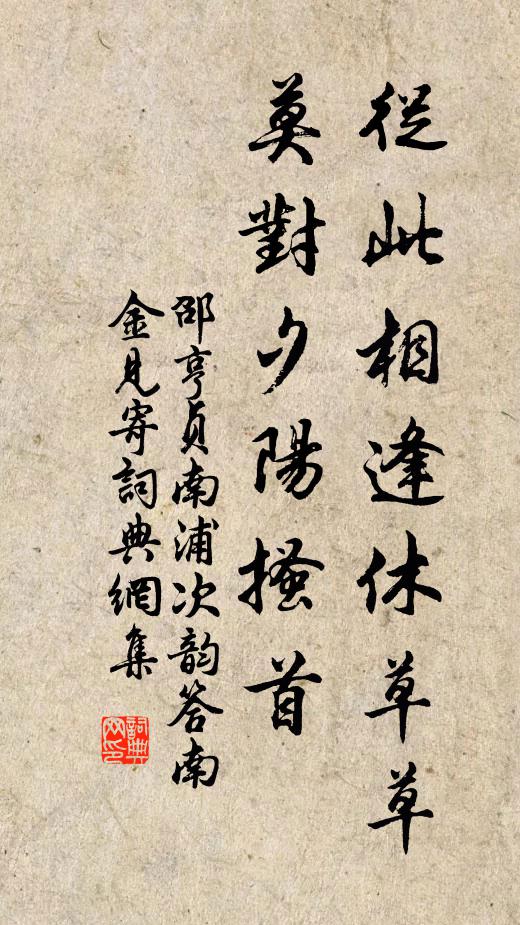 從此相逢休草草
莫對夕陽搔首
邵亨貞南浦次韵答南
金見寄詞典網集
詞典
网印